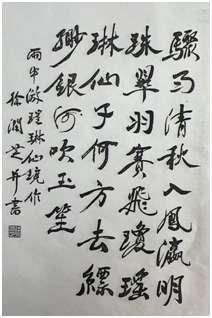 驟雨清秋入鳳瀛明
珠翠羽賽飛瓊瑤
琳仙子何方去縹
緲銀河吹玉笙
雨中游瑤琳仙境作
徐潤芝并書